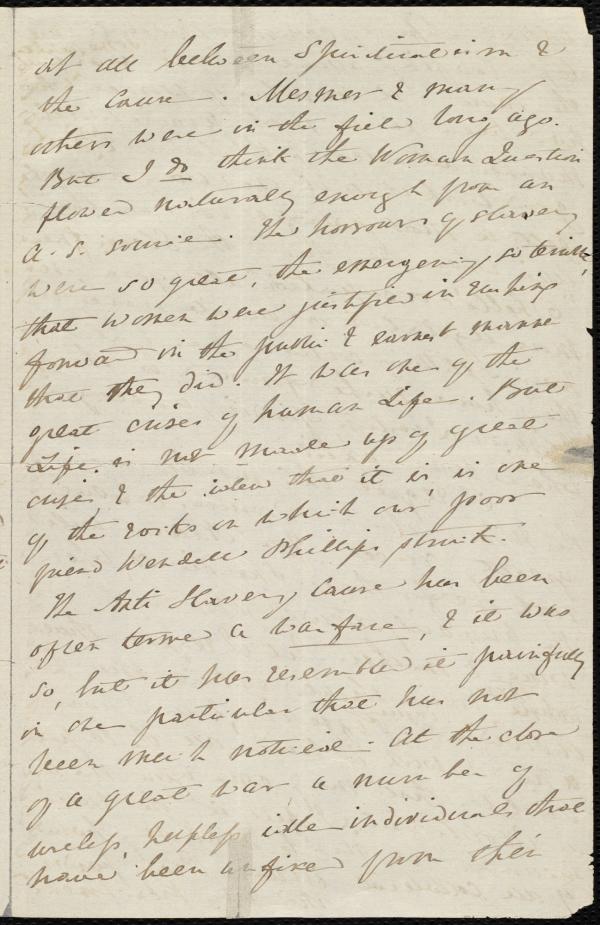 at all between Spiritualism &
the Cause. Mesmer & many
others were in the field long ago.
But I do think the Woman Question
flowed naturally enough from an
A. S. source. The horrours of slavery
were so great, the emergency so terrible,
that women were justified in rushing
forward in the public & earnest manner
that they did. It was one of the
great crises of human Life. But
Life is not made up of great
crises, & the idea that it is is one
of the rocks on which our poor
friend Wendell Phillips struck.
The Anti Slavery Cause has been
often termed a warfare, & it was
so, but it has resembled it painfully
in one particular that has not
been much noticed. At the close
of a great war a number of
useless helpless idle individuals that
have been unfixed from their